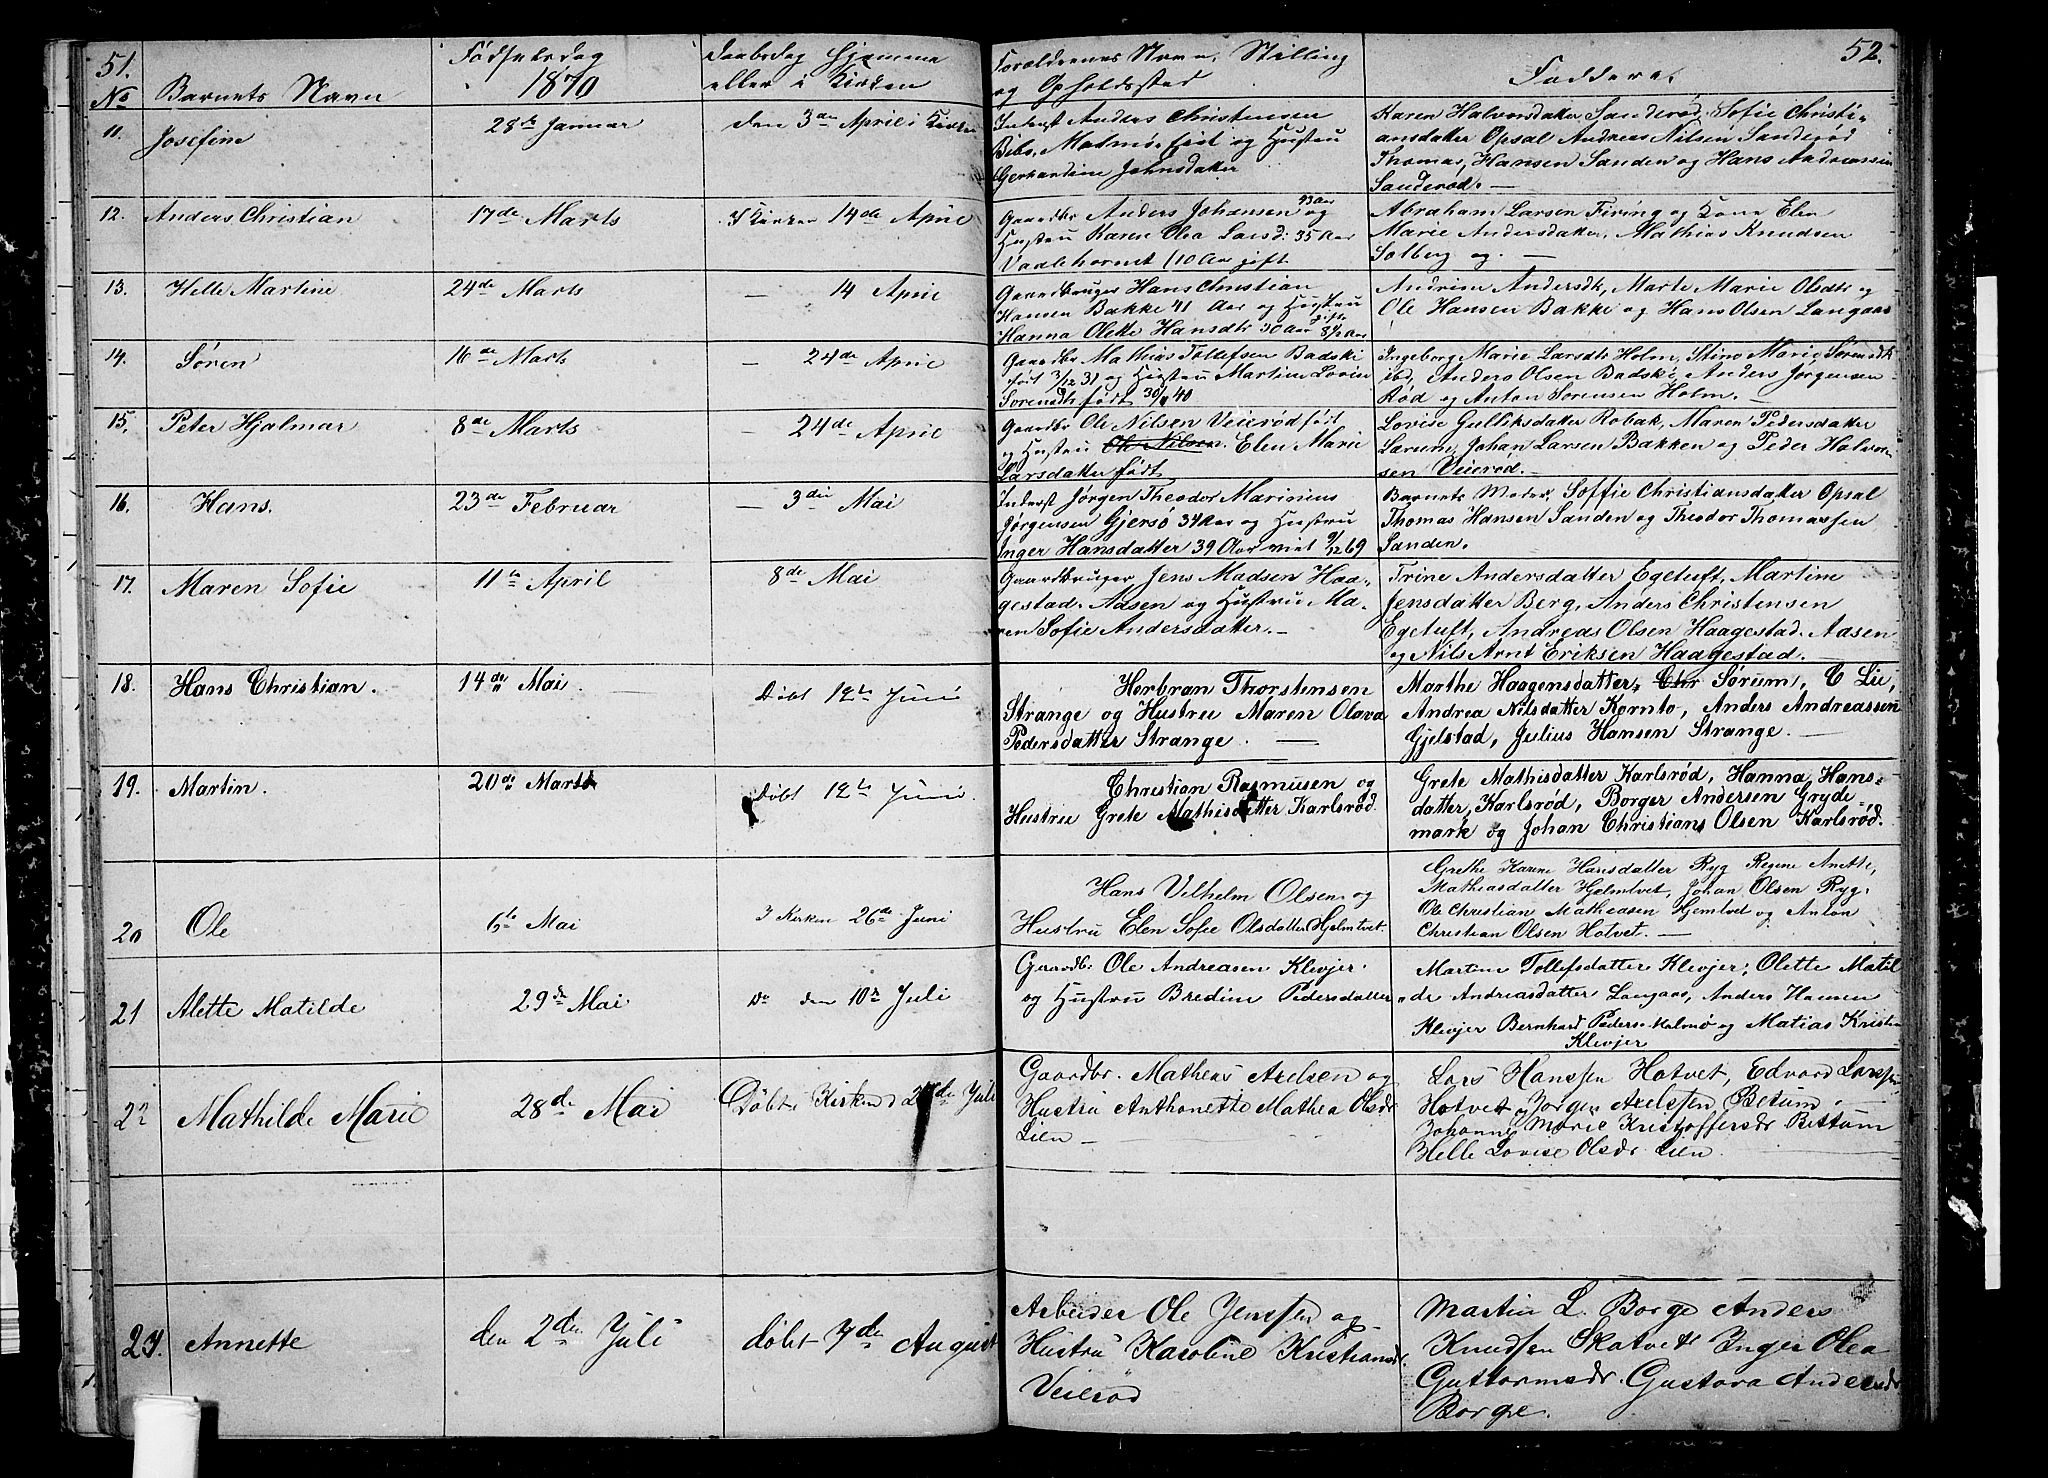 51.
No
Barnets Navn
Fødselsdag
1870
Daabsdag Hjemme
eller i Kirken
Forældrenes Navn, Stilling
og Opholdssted
Faddere.
52.
11.
Josefine
28de Januar
den 3die April i Kirken
Inderst Anders Christensen
Bibo, Malmö, föd og Hustru
Gerhardine Johnsdatter
Karen Halvorsdatter Sanderød, Sofie Christi-
ansdatter Opsal Andreas Nilsen Sanderød
Thomas Hansen Sanden og Hans Andreassen
Sanderød. —
12.
Anders Christian
17de Marts
I Kirken 14de April
Gaardbr Anders Johansen 43 Aar og
Hustru Karen Olea Larsd: 35 Aar
Vaalehornet (10 Aar gift
Abraham Larsen Firing og Kone Elen
Marie Andersdatter, Mathias Knudsen
Solberg og. —
13.
Helle Martine
24de Marts
— 14 April
Gaardbruger Hans Christian
Hansen Bakke 41 Aar og Hustru
Hanna Olette Hansdtr 30 Aar gift 8½ Aar
Andrine Andersdtr, Marte Marie Olsdtr og
Ole Hansen Bakke og Hans Olsen Langaas
14.
Søren
16de Marts
— 24de April
Gaardbr Mathias Tollefsen Badski
født 3/12 31 og Hustru Martine Lovise
Sørensdtr født 30/ 40
Ingeborg Marie Larsdtr Holm, Stine Marie Sørensdtr
ibd, Anders Olsen Badski, Anders Jørgensen
Rød og Anton Sørensen Holm. —
15.
Peter Hjalmar
8de Marts
— 24de April
Gaardbr Ole Nilsen Veierød født
og Hustru Ole Nilsen. Elen Marie
Larsdatter født
Lovise Gulliksdatter Robak, Maren Pedersdatter
Lærum, Johan Larsen Bakken og Peder Halvor-
sen Veierød. —
16.
Hans.
23de Februar
— 3die Mai
Inderst Jørgen Theodor Marinius
Jørgensen Gjersø 34 Aar og Hustru
Inger Hansdatter 39 Aar viet 9/12 69
Barnets Moder, Soffie Christiansdatter Opsal
Thomas Hansen Sanden og Theodor Thomassen
Sanden.
17.
Maren Sofie
11te April
8de Mai
Gaardbruger Jens Madsen Haa-
gestad. Aasen og Hustru Ma-
ren Sofie Andersdatter. —
Trine Andersdatter Egetuft, Martine
Jensdatter Berg, Anders Christensen
Egetuft, Andreas Olsen Haagestad. Aasen
og Nils Arnt Eriksen Haagestad.
18.
Hans Christian.
14de Mai.
Døbt 12te Juni
Herbran Thorstensen
Strange og Hustru Maren Olava
Pedersdatter Strange. —
Marthe Haagensdatter, Chr Sørum, C Lie,
Andrea Nilsdatter Kornto, Anders Andreassen
Gjelstad, Julius Hansen Strange. —
19.
Martin.
20de Marts
Døbt 12te Juni.
Christian Rasmusen og
Hustru Grete Mathisdatter Karlsrød.
Grete Mathisdatter Karlsrød, Hanna Hans-
datter, Karlsrød, Borger Andersen Gryde-
mark og Johan Christians Olsen Karlsrød.
20
Ole
6te Mai
I Kirken 26de Juni
Hans Vilhelm Olsen og
Hustru Elen Sofie Olsdatter Hjelmtvet.
Grethe Karine Hansdatter Ryg Regine Anette,
Mathiasdatter Hjelmtvet, Johan Olsen Ryg.
Ole Christian Matheasen Hjemtvet og Anton
Christian Olsen Hotvet. —
21
Alette Matilde
29de Mai
Do den 10de Juli
Gaardb. Ole Andreasen Klevjer.
og Hustru Bredine Pedersdatter
Martine Tollefsdatter Klevjer, Olette Matil-
de Andreasdatter Langaas, Anders Hansen
Klevjer Bernhard Peders. Malmø og Matias Kristian
Klevjer
22
Mathilde Marie
28de Mai
Døbt i Kirken d 2de Juli
Gaardbr. Matheus Axelsen og
Hustru Anthonette Mathea Olsdr
Lien —
Lars Hanssen Hotvet, Edvard Larssen
Hotvet og Jørgen Axelssen Betum.
Johanne Marie Kristoffersdr Bettum
Helle Lovise Olsdr Lien.
23.
Annette
den 2den Juli
døbt 7de August
Arbeider Ole Jenssen og
Hustru Karoline Kristiansdr.
Veierød
Martin L. Borge Anders
Knudsen Skatvet Inger Olea
Guttormsdr. Gustava Andersdr
Borge.